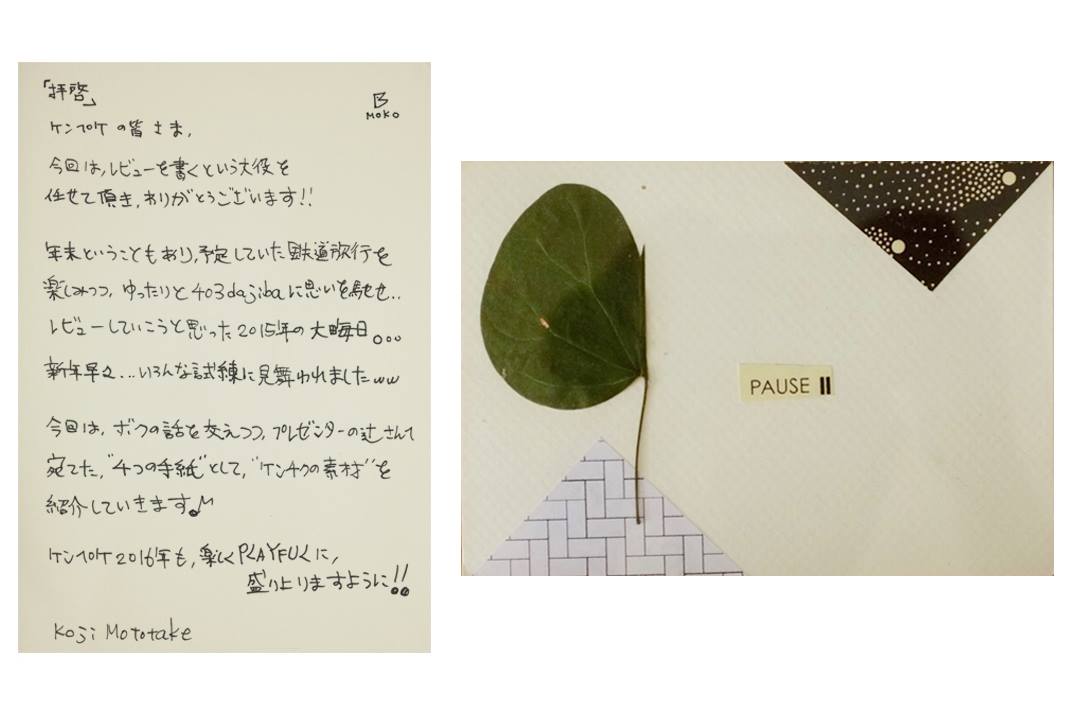 「拝啓」
B
MOKO
ケンペケ の皆さま,
今回は,レビューを書くという大役を
任せて頂き,ありがとうございます!!
年末ということもあり,予定していた鉄道旅行を
楽しみつつ, ゆったりと403dajibaに思いを馳せ..
レビューしていこうと思った2015年の大晦日。。。
新年早々...いろんな試練に見舞われましたww
今回は, ボクの話を交えつつ, プレゼンターの辻さんて
宛てた,"4つの手紙"として,"ケンチクの素材"を
紹介していきます♪
ケンペケ2016年も, 楽しくPLAYFULに,
盛り上りますように!!
Koji Mototake
PAUSE II